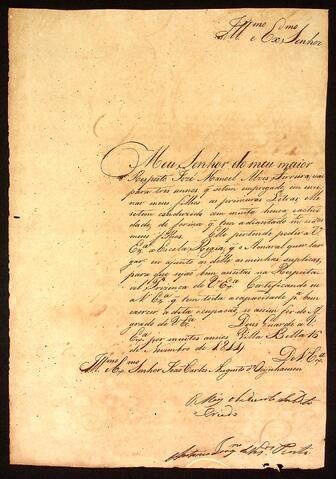 Ill.mo e Ex.mo Senhor
Meu Senhor do meu maior
Respeito José Manoel Alves Ferreira, vai
para tres annos q̃ setem empregado em ensi
nar meus filhos as primeiras Letras, elle
setem conduzido com muita honra, e activi
dade, de forma q̃ tem adiantado
meus filhos. Elle pertende pedir a V.
Ex.a a Escola Regia, q̃ o Amaral quer lar
gar eu ajunto as delle as minhas suplicas,
para que sejaõ bem aseitas na Respeita
vel Prezença de V. Ex.a Certificando eu
a V. Ex.a q̃ tem toda a capacidade p.a bem
exercer a dita ocupaçaõ, se assim for do A
grado de V. Ex.a Deus Guarde a V.
Ex.a por muitos annos Villa Bella 15
de Novembro de 1814
De V. Ex.a
Ill.mo e Ex.mo Senhor João Carlos Augusto d'Oeynhausen
O Mais
Criado
Antonio